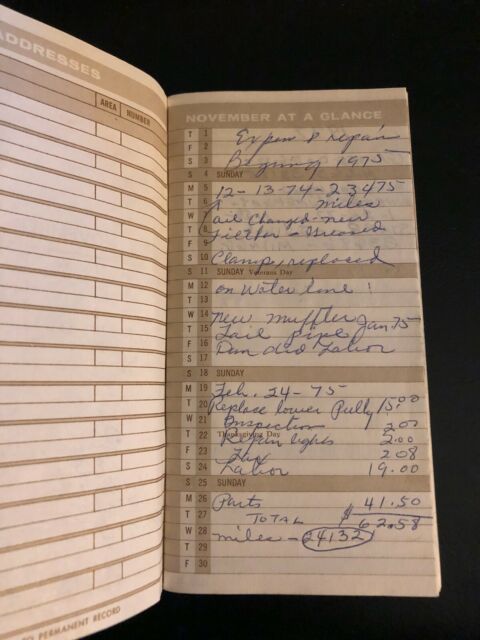 ADDRESSES
AREA NUMBER
TO PERMANENT RECORD
NOVEMBER AT A GLANCE
T 1 Expen & repair
F 2
S 3 Begining 1975
S 4 SUNDAY
M 5 12-13-74-23475
T 6 miles
W 7 oil Changed-new
T 8 Fielther - Greased
F 9
S 10 Clamp, replaced
S 11 SUNDAY Veterans Day
M 12 on Water line!
T 13
W 14 new muffler
T 15 Tail pipe Jan 75
F 16 Dan did Labor
S 17
S 18 SUNDAY
M 19 Feb. 24-75
T 20 Replace lower Pully 15.00
W 21 Inspection 2.00
T 22 Thanksgiving Day Repair lights 2.00
F 23 Tax 2.08
S 24 Labor 19.00
S 25 SUNDAY
M 26 Parts 41.50
T 27 TOTAL $ 62.58
W 28 miles - 24132
T 29
F 30